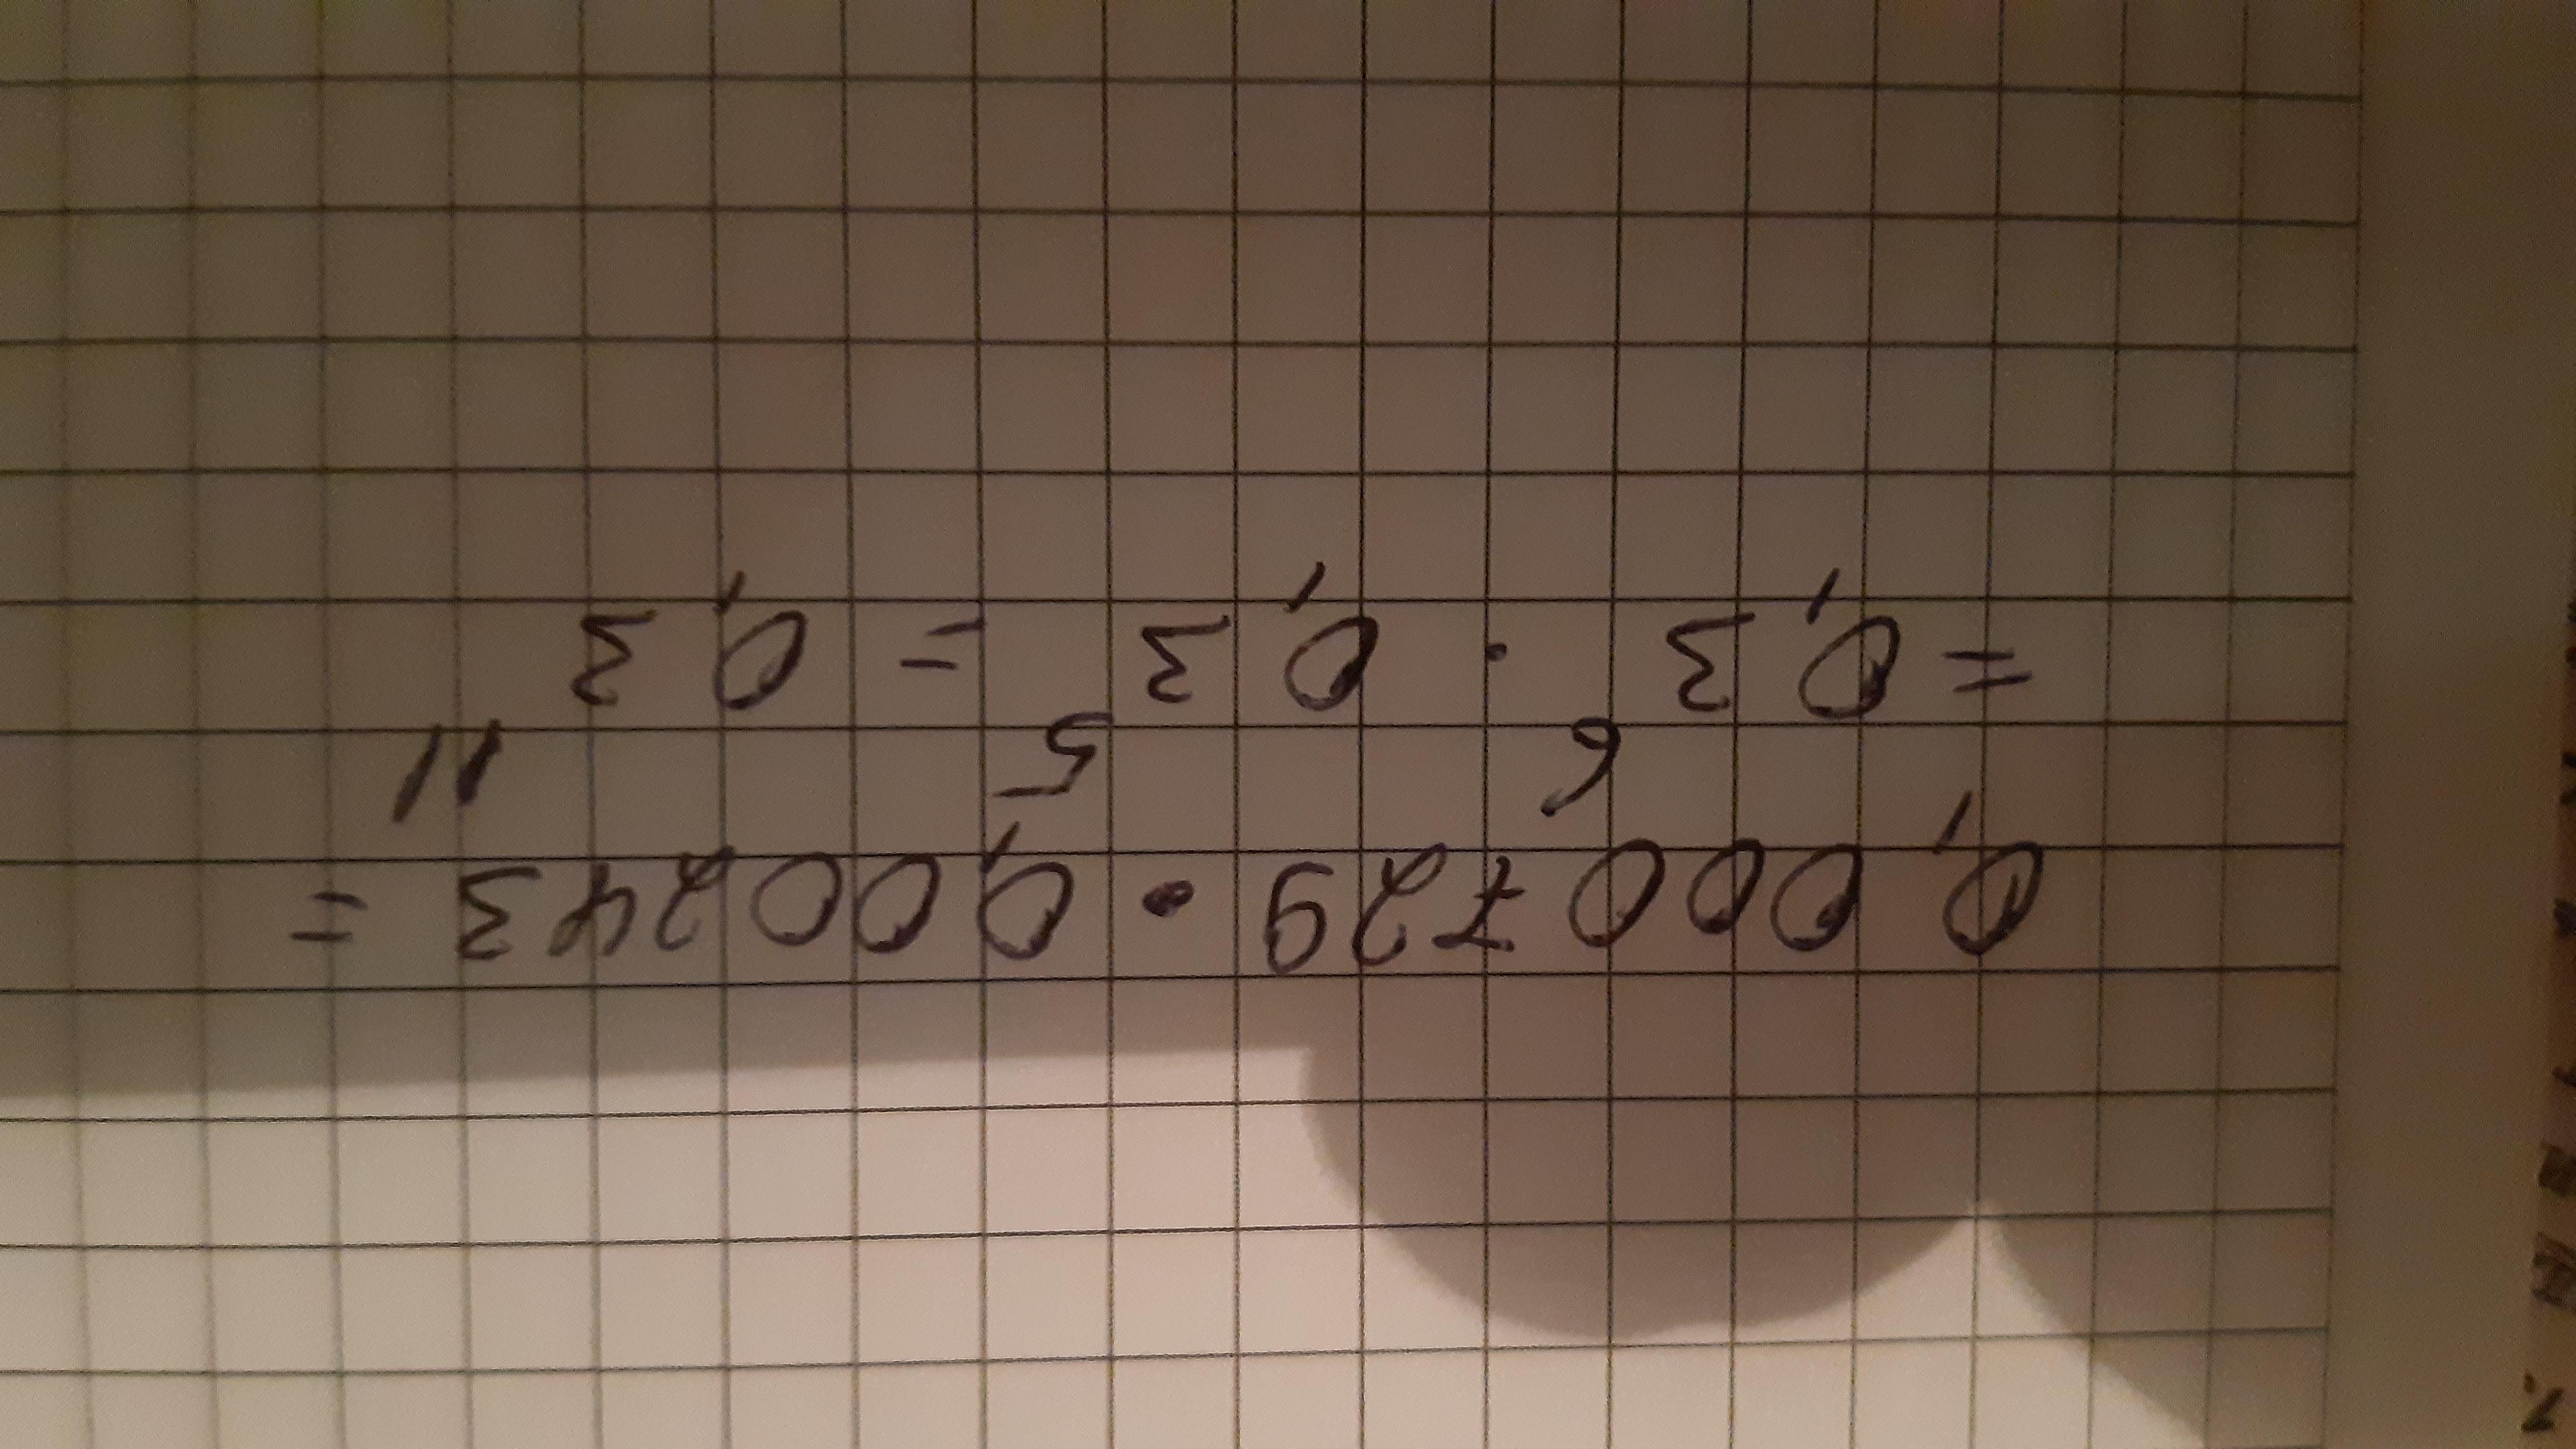 0,000729 · 0,00243 =
= 0,3⁶ · 0,3⁵ = 0,3¹¹